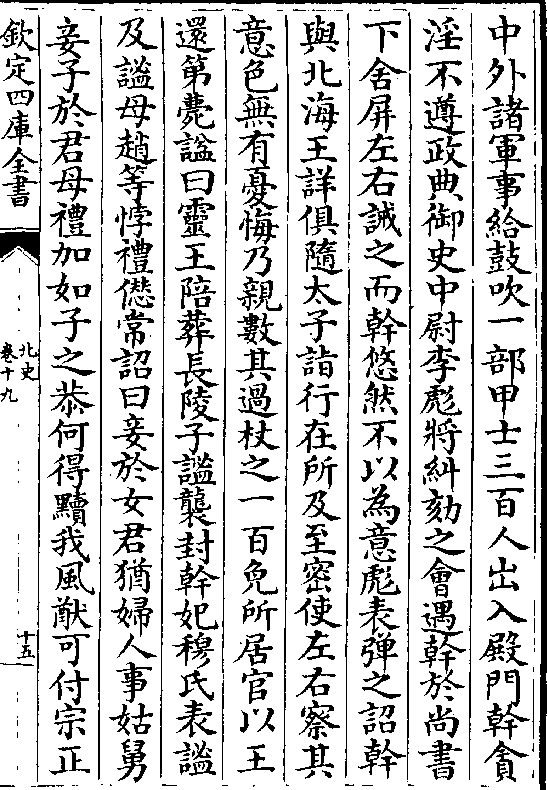 中外諸軍事給鼓吹一部甲士三百人出入殿門幹貪
淫不遵政典御史中尉李彪將糾劾之會遇幹於尚書
下舍屏左右誡之而幹悠然不以為意彪表彈之詔幹
與北海王詳俱隨太子詣行在所及至密使左右察其
意色無有憂悔乃親數其過杖之一百免所居官以王
還第薨諡曰靈王陪葬長陵子諡襲封幹妃穆氏表諡
及諡母趙等悖禮愆常詔曰妾於女君猶婦人事姑舅
妾子於君母禮加如子之恭何得黷我風猷可付宗正
欽定四庫全書
北史
卷十九
十五